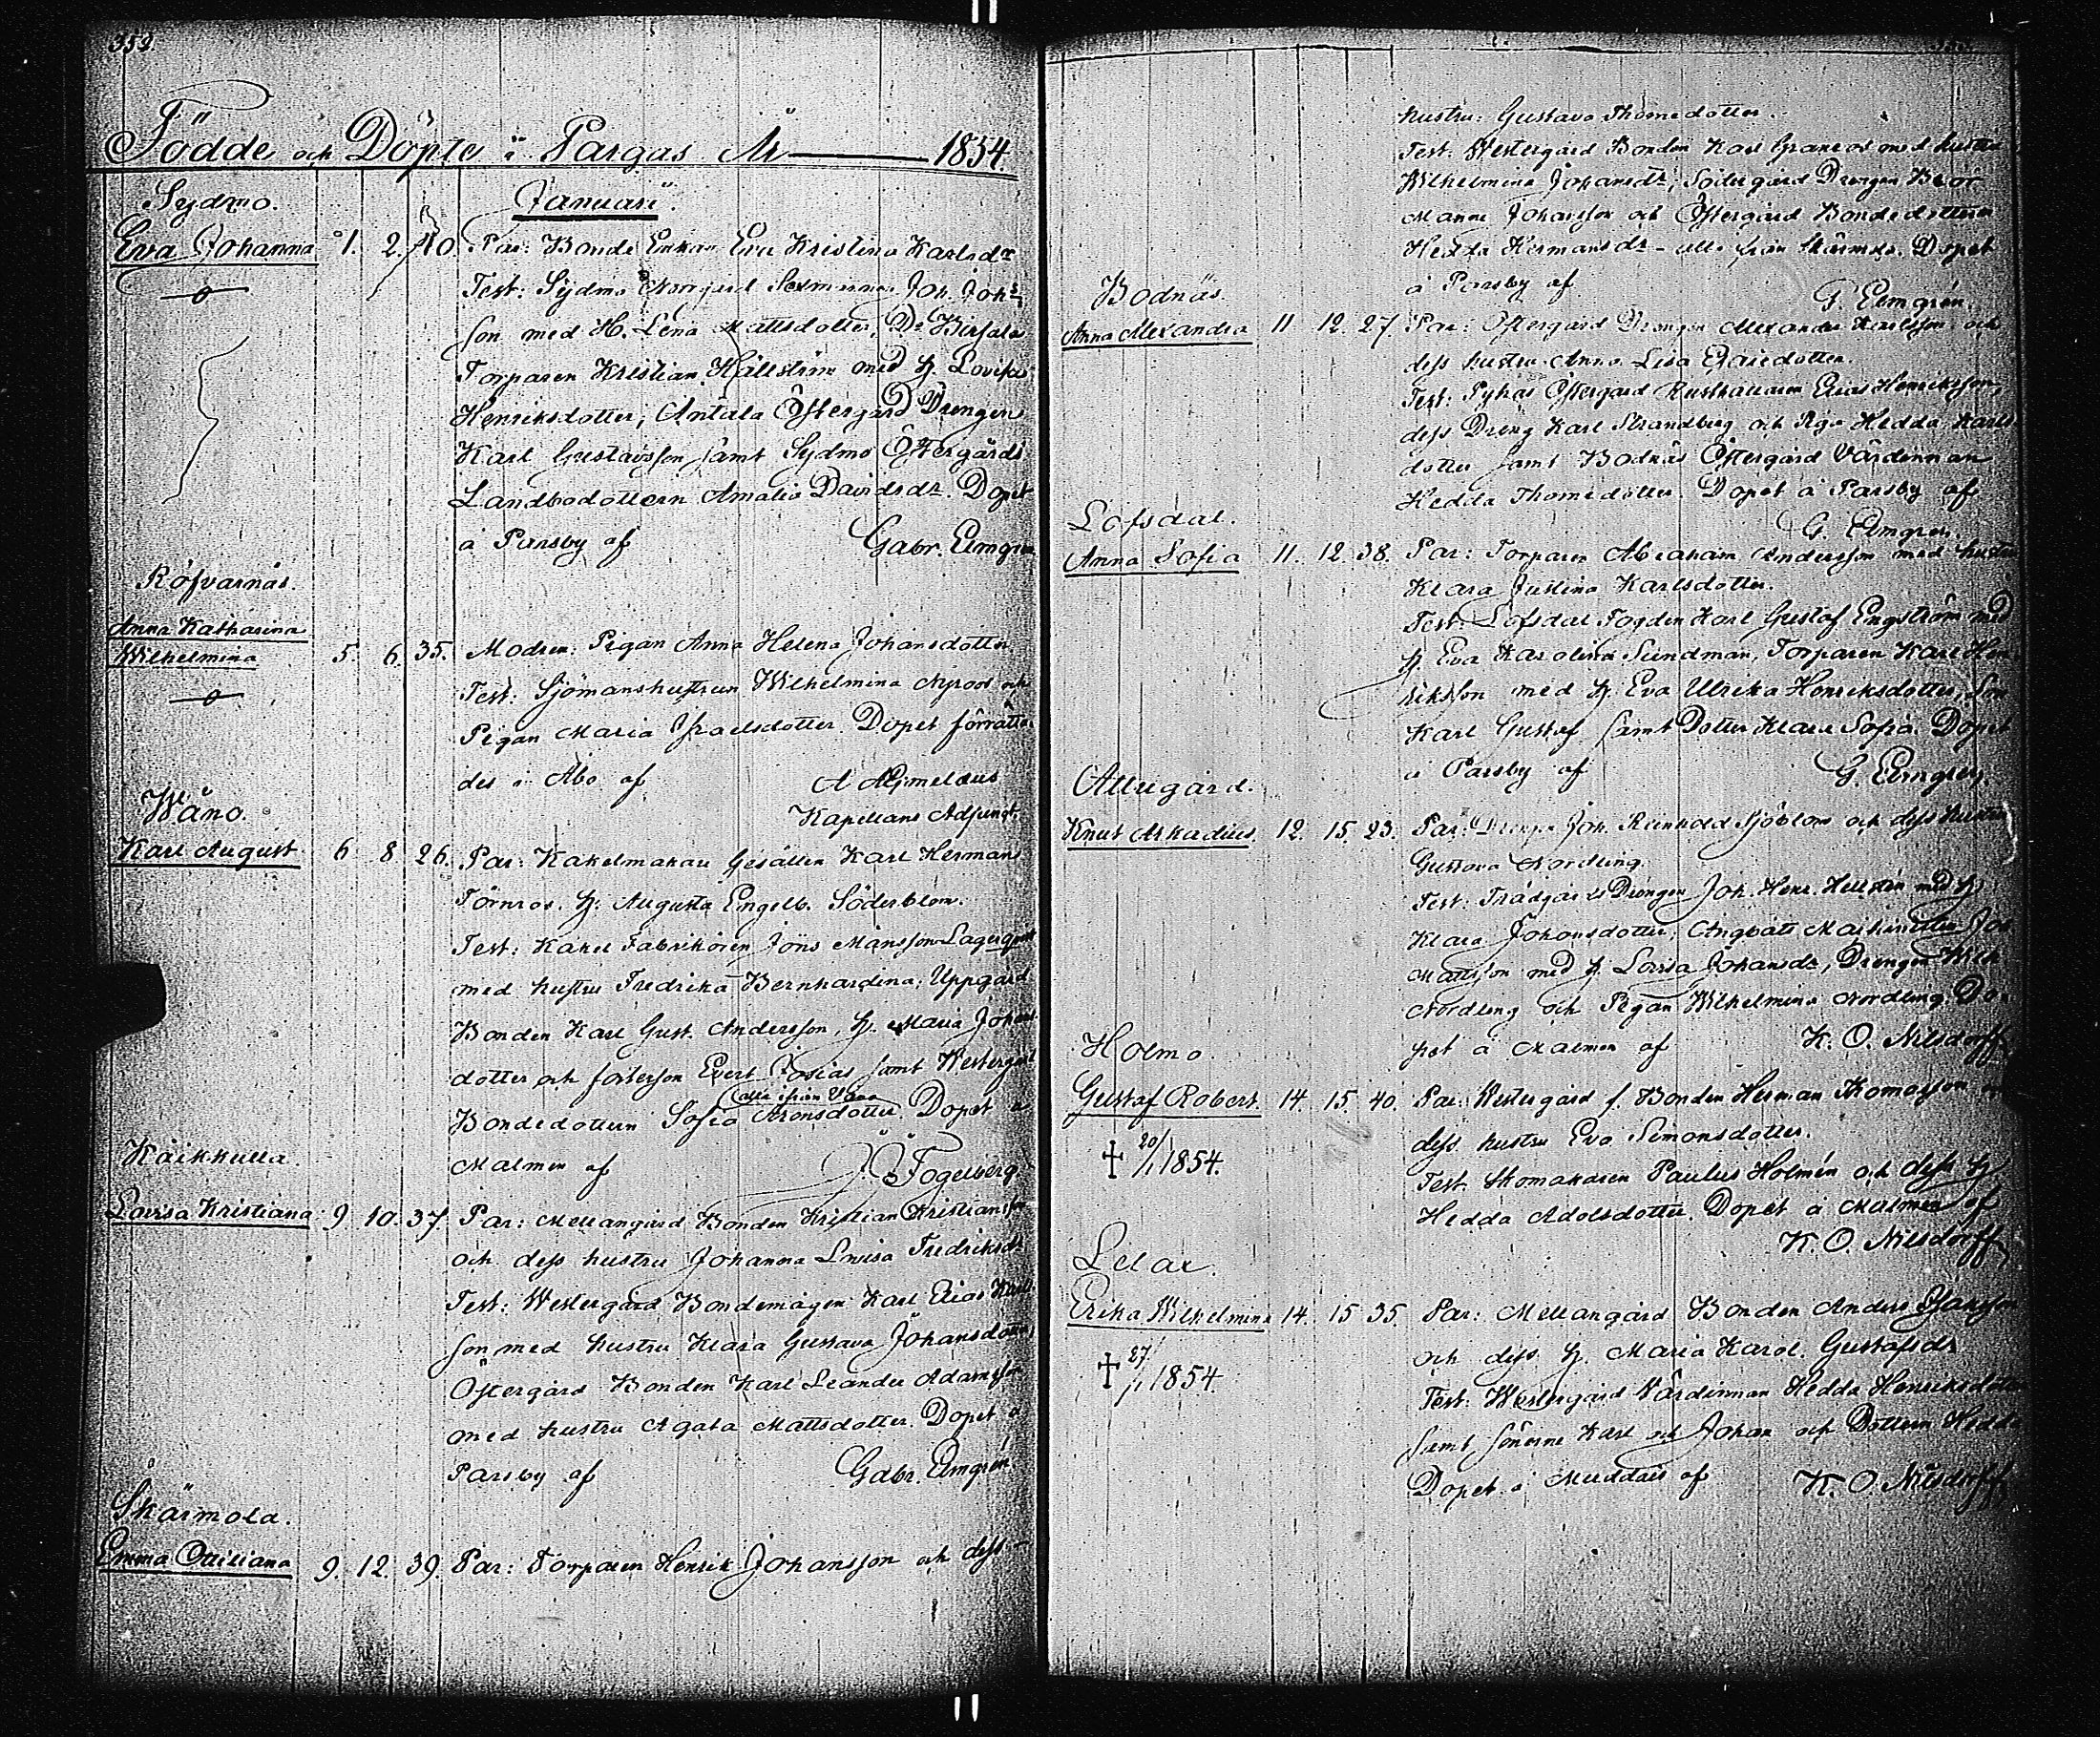 352.
Födde och Döpte i Pargas År 1854.
Januari.
Sydmo.
Eva Johanna 1. 2. 40. Par: Bonde Enkan Eva Kristina Karlsdr
Test: Sydmo Norrgård Sexmannen Joh. Johs
son med H. Lena Mattsdotter,
Torparen Kristian Hällström med H. Lovisa
Henriksdotter; Antala Östergård Drengen
Karl Gustavsson samt Sydmo Östergårds
Landbodottern Amalia Davidsdr. Dopet
å Parsby af Gabr. Elmgren
Röfvarnäs.
Anna Katharina
Wilhelmina 5. 6. 35. Modren: Pigan Anna Helena Johansdotter
Test: Sjömanshustrun Wilhelmina och
Pigan Maria Israelsdotter. Dopet förrätta-
des i Åbo af
Kapellans Adjunct.
Wåno.
Karl August 6. 8 26. Par: Kakelmakare Gesällen Karl Herman
Törnros. H: Augusta Engelb. Söderblom.
Test: Kakel Fabrikören Jöns Månsson Lagerqvist
med hustru Fredrika Bernhardina, Uppgård
Bonden Karl Gust. Andersson, H. Maria Johans
dotter och fosterson Evert Josias samt Westergård
Bondedottern Sofia Aronsdotter Dopet å
Malmen af Fogelberg
Kåikkulla.
Lovisa Kristiana 9 10. 37. Par: Mellangård Bonden Kristian Kristiansson
och dess hustru Johanna Lovisa Fredriksdr
Test: Westergård Bondemågen Karl Elias Karls
son med hustru Klara Gustava Johansdotter
Östergård Bonden Karl Leander Adamsson
med hustru Agata Mattsdotter. Dopet å
Parsby af Gabr. Elmgrén
Skärmola.
Emma Ottiliana 9. 12. 39. Par: Torparen Henrik Johansson och dess
hustru: Gustava Thomedotter.
Test. Westergård Bonden Karl Granroos med hustru
Wilhelmina Johansdr; Södergård Drengen Karl
Manne Johansson och Östergård Bondedottern
Hedda Hermansdr. alla från Skärmola. Dopet
å Parsby af G. Elmgrén.
Bodnäs.
Anna Alexandra 11 12. 27. Par: Östergård Drengen Alexander Karlsson och
dess hustru Anna Lisa
Test: Pyhäs Östergård Rusthållaren Elias Henriksson,
dess Dreng Karl Strandberg och Piga Hedda Karls
dotter samt Bodnäs Östergård Värdinnan
Hedda Thomedotter. Dopet å Parsby af
G. Elmgrén.
Lofsdal.
Anna Sofia 11. 12. 38. Par: Torparen Abraham Andersson med hustru
Klara Justina Karlsdotter.
Test: Lofsdal Fogden Karl Gustaf Engström med
H. Eva Karolina Sundman, Torparen Karl Hen
riksson med H. Eva Ulrika Henriksdotter, Son
Karl Gustaf samt Dotter Klara Sofia. Dopet
å Parsby af G. Elmgren.
Attugård.
Knut Arkadius. 12. 15. 23. Par: Drengen Joh. Reinhold Sjöblom och dess hustru
Gustava Nordling.
Test: Trädgårds Drengen Joh. Henr. Hellstén med H.
Klara Johansdotter, Ångbåts Maskinisten
Mattsson med H. Lovisa Johansdr, Drengen Wilh
Nordling och Pigan Wilhelmina Nordling. Do-
pet å Malmen af K. O. Nilsdorff
Holmo.
Gustaf Robert. 14. 15. 40. Par: Westergård f. Bonden Herman Thomasson och
dess hustru Eva Simonsdotter.
† 20/1 1854.
Test. Skomakaren Paulus Holmén och dess H.
Hedda Adolsdotter. Dopet å Malmen af
K. O. Nilsdorff
Lelax.
Erika Wilhelmina 14. 15 35. Par: Mellangård Bonden Anders
och dess H. Maria Karol. Gustafsdr
† 27/1 1854.
Test: Westergård Värdinnan Hedda Henriksdotter
samt sönerne Karl och Johan och Dottern Hedda
Dopet å Muddais af K. O. Nilsdorff